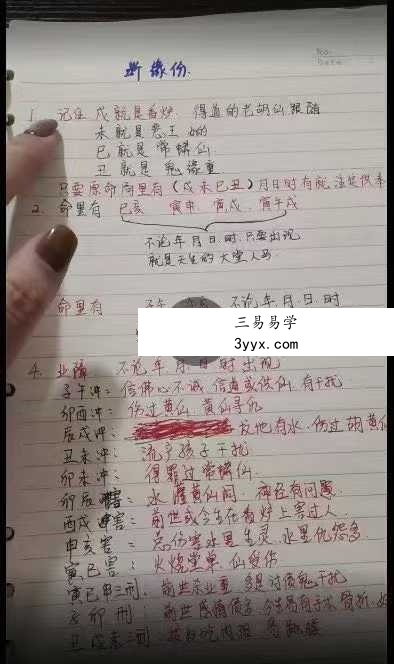 断缘份.
No.
Date
1. 记住 戌就是香炉. 得道的老胡仙跟随
未就是
巳就是 常蟒仙.
丑就是 鬼缘重
只要原命局里有(戌未巳丑)月日时有就
2. 命里有 巳亥 寅申. 寅戌. 寅午戌
不论年月日.时.只要出现
就是天生的大堂人马.
命里有 不论年.月.日.时
三易易学
3yyx.com
4. 不论年.月.日.时出现
子午冲: 信佛心不诚 信道或供仙.有干扰
卯酉冲: 伤过黄仙 黄仙寻仇
辰戌冲: 有水.伤过
丑未冲: 流了孩子干扰
卯未冲: 得罪过常蟒仙.
卯辰害: 水 黄仙闹. 神经有问题
酉戌害: 前世或今生在香炉上害过人
申亥害= 伤害水里生灵.水里仇怨多.
寅巳害: 火烧堂单 仙受伤
寅巳申三刑. 前世杀业重 多是讨债鬼干扰
卯刑: 前世感情债多
丑戌未三刑: